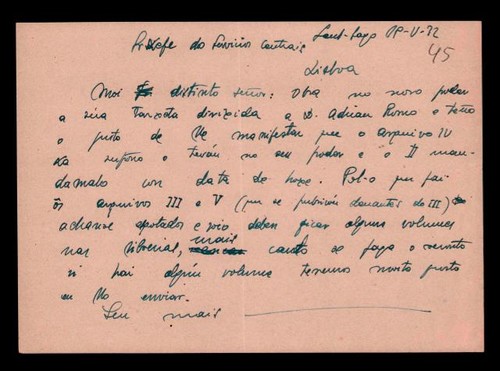 Sr. Xefe do Servicios Centrais Sant-Iago 19-V-72
45
Lisboa
Moi distinto señor: Obra no noso poder
a súa tarxeta dirixida a D. Adrian e teño
o gusto de lle manifestar que o arquivo IV
xa supoño o terán no seu poder e o II man-
damolo con data de hoxe. Pol-o que fai
ós arquivos III e V (que se publicou denantes do III)
achanse agotados e soio deben quedar algun volumes
nas librerias, mais cando se faga o reconto
si hai algun volume teremos moito gusto
en lle enviar.
Seu mais